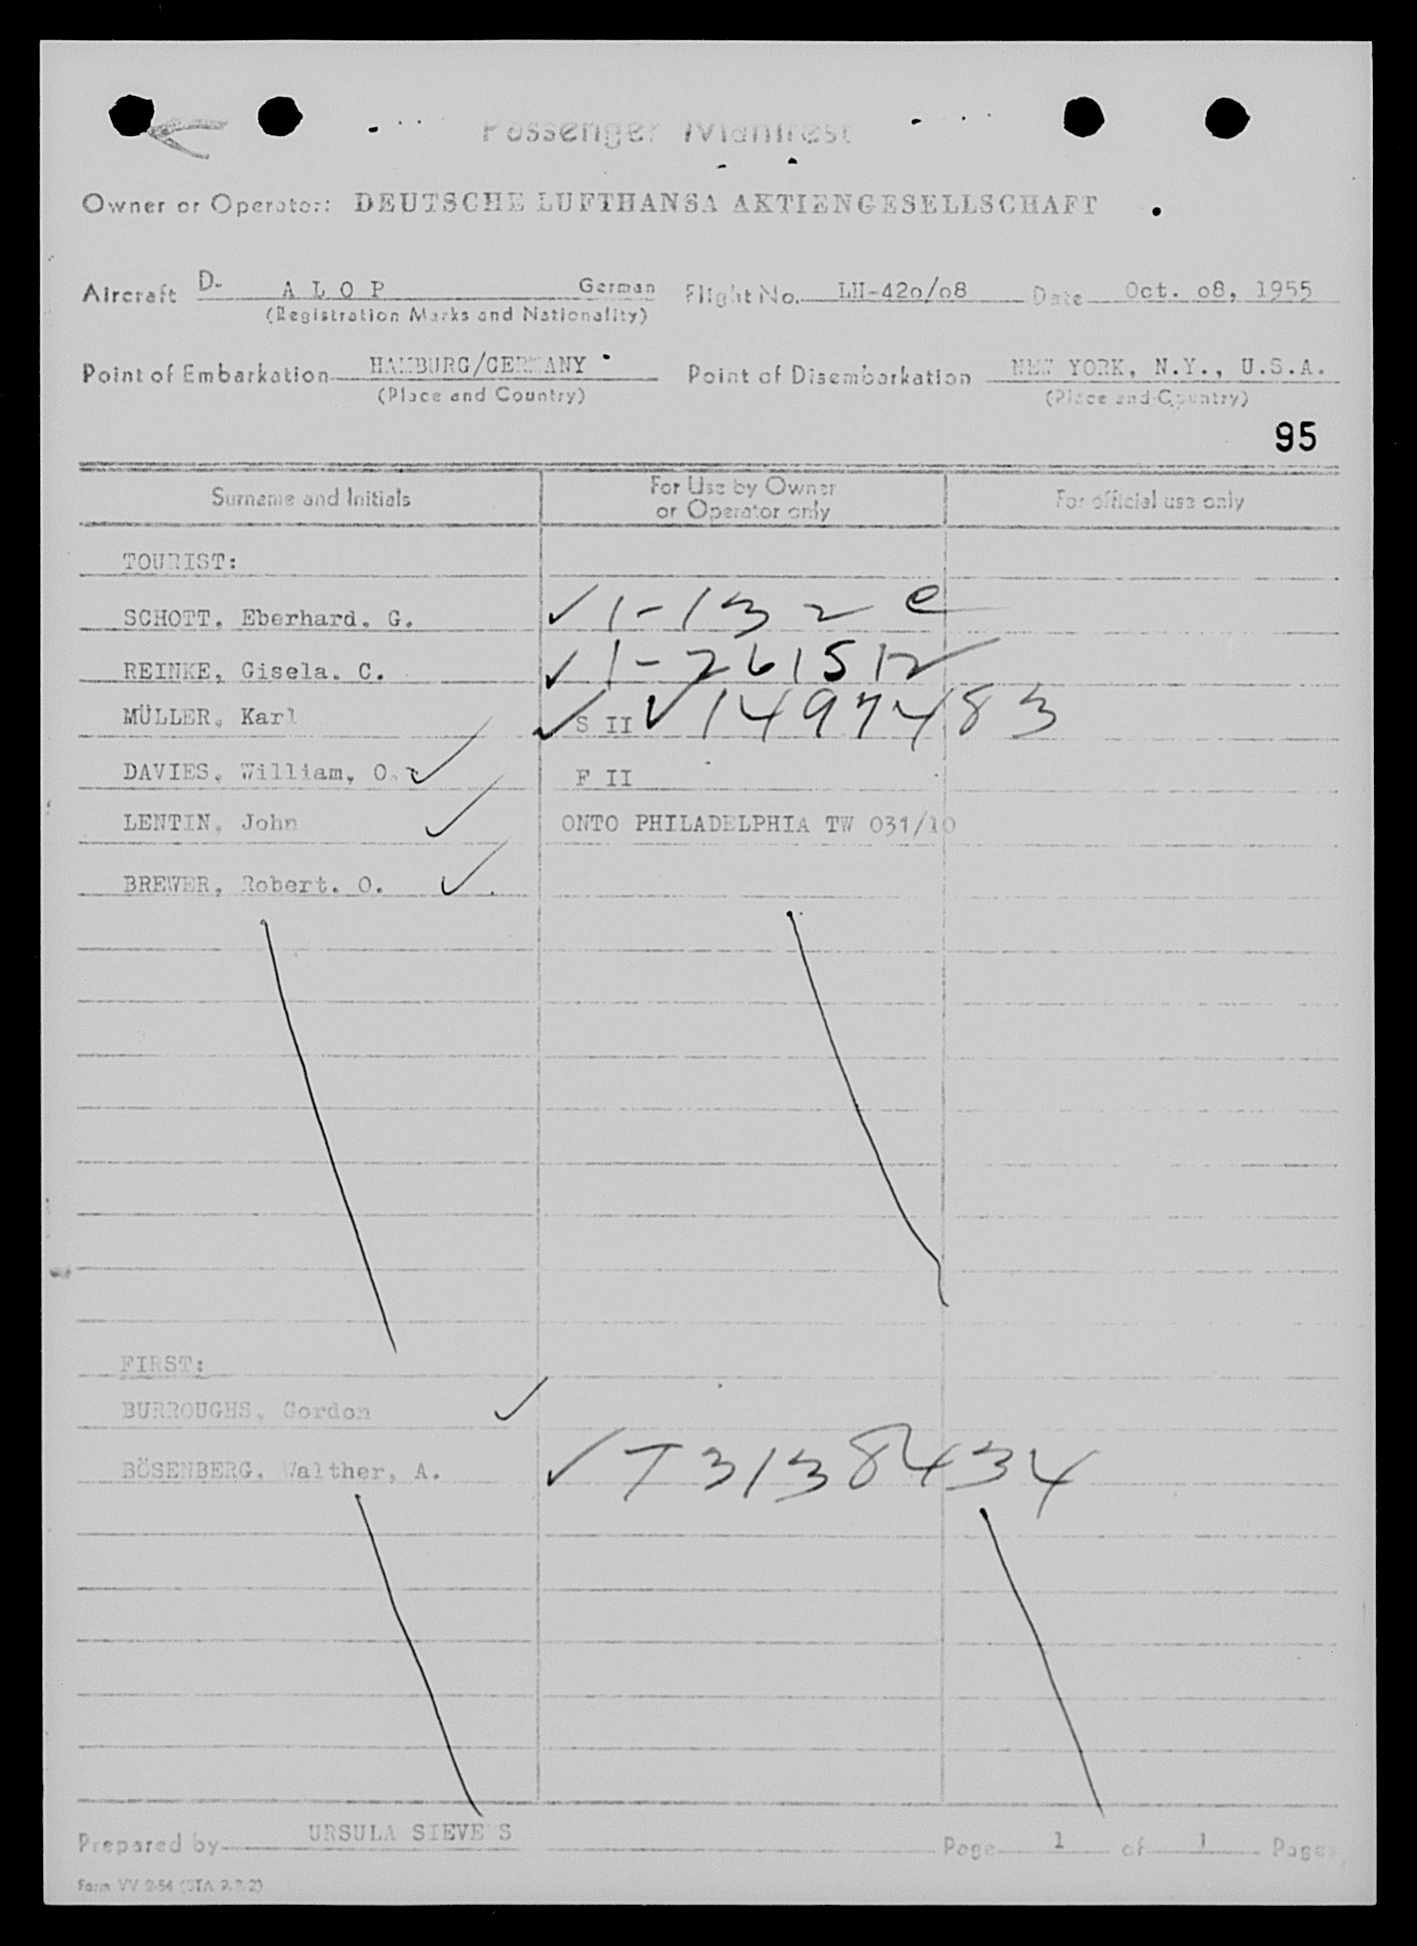 Passenger Manifest
Owner or Operator: DEUTSCHE LUFTHANSA AKTIENGESELLSCHAFT
Aircraft D- A L O P German Flight No. LH-42o/o8 Date Oct. o8, 1955
(Registration Marks and Nationality)
Point of Embarkation HAMBURG/GERMANY Point of Disembarkation NEW YORK, N.Y., U.S.A.
(Place and Country) (Place and Country)
95
Surname and Initials For Use by Owner or Operator only For official use only
TOURIST:
SCHOTT, Eberhard. G. ✓ 1-132 e
REINKE, Gisela. C. ✓ 1-261512
MÜLLER, Karl ✓ S II ✓ 1497483
DAVIES, William, O. ✓ F II
LENTIN, John ✓ ONTO PHILADELPHIA TW 031/10
BREWER, Robert. O. ✓
FIRST:
BURROUGHS, Gordon ✓
BÖSENBERG, Walther, A. ✓ T3138434
Prepared by URSULA SIEVERS Page 1 of 1 Pages
Form VV 2-54